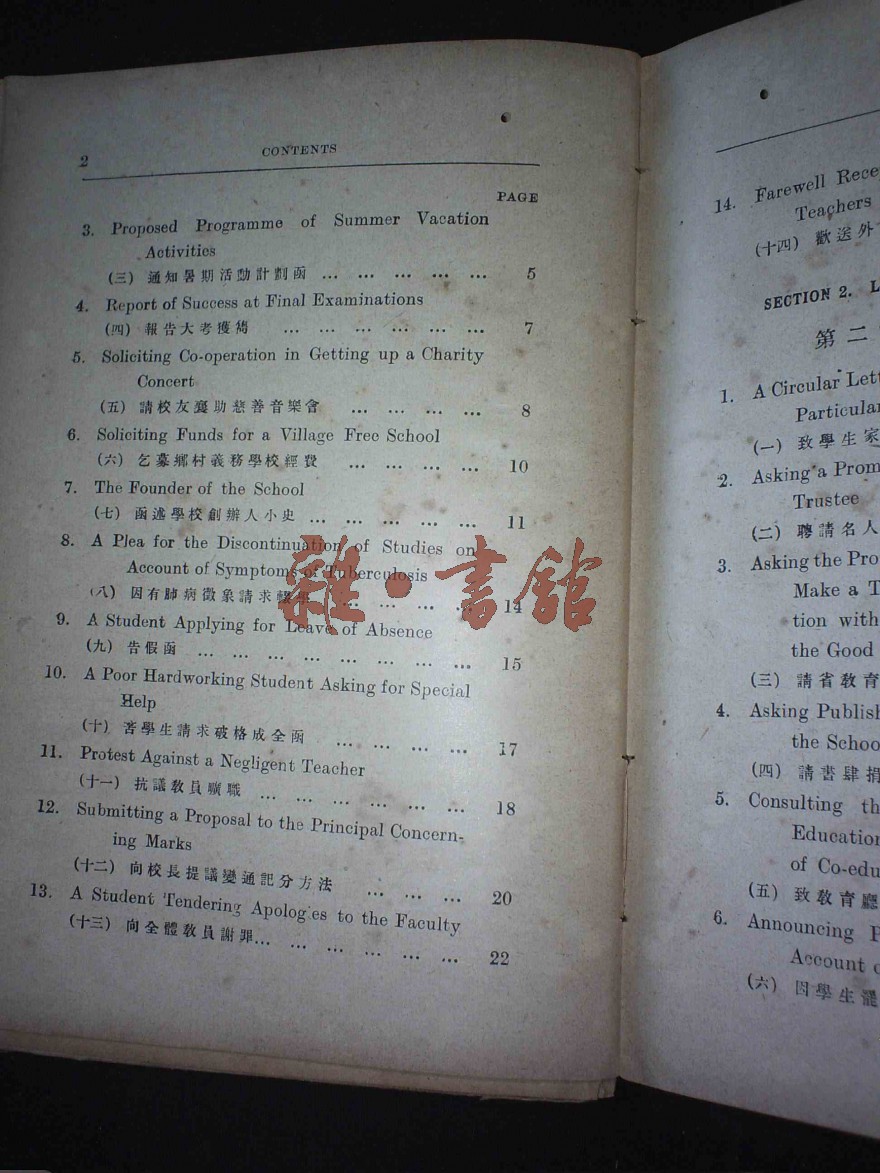 2
CONTENTS
PAGE
3. Proposed Programme of Summer Vacation
Activities
(三) 通知暑期活動計劃函 ... ... ... ... ... 5
4. Report of Success at Final Examinations
(四) 報告大考獲雋 ... ... ... ... ... ... 7
5. Soliciting Co-operation in Getting up a Charity
Concert
(五) 請校友襄助慈善音樂會 ... ... ... ... 8
6. Soliciting Funds for a Village Free School
(六) 乞募鄉村義務學校經費 ... ... ... ... 10
7. The Founder of the School
(七) 函述學校創辦人小史 ... ... ... ... ... 11
8. A Plea for the Discontinuation of Studies on
Account of Symptoms of Tuberculosis
(八) 因有肺病徵象請求輟學 ... ... ... ... 14
9. A Student Applying for Leave of Absence
(九) 告假函 ... ... ... ... ... ... ... ... 15
10. A Poor Hardworking Student Asking for Special
Help
(十) 苦學生請求破格成全函 ... ... ... ... 17
11. Protest Against a Negligent Teacher
(十一) 抗議教員曠職 ... ... ... ... ... ... 18
12. Submitting a Proposal to the Principal Concern-
ing Marks
(十二) 向校長提議變通記分方法 ... ... ... 20
13. A Student Tendering Apologies to the Faculty
(十三) 向全體教員謝罪... ... ... ... ... ... 22
雜·書館
14. Farewell Rece
Teachers
(十四) 歡送外
SECTION 2. L
第二
1. A Circular Lett
Particular
(一) 致學生家
2. Asking a Prom
Trustee
(二) 聘請名人
3. Asking the Pro
Make a T
tion with
the Good
(三) 請省教育
4. Asking Publish
the Schoo
(四) 請書肆捐
5. Consulting th
Education
of Co-edu
(五) 致教育廳
6. Announcing P
Account o
(六) 因學生罷